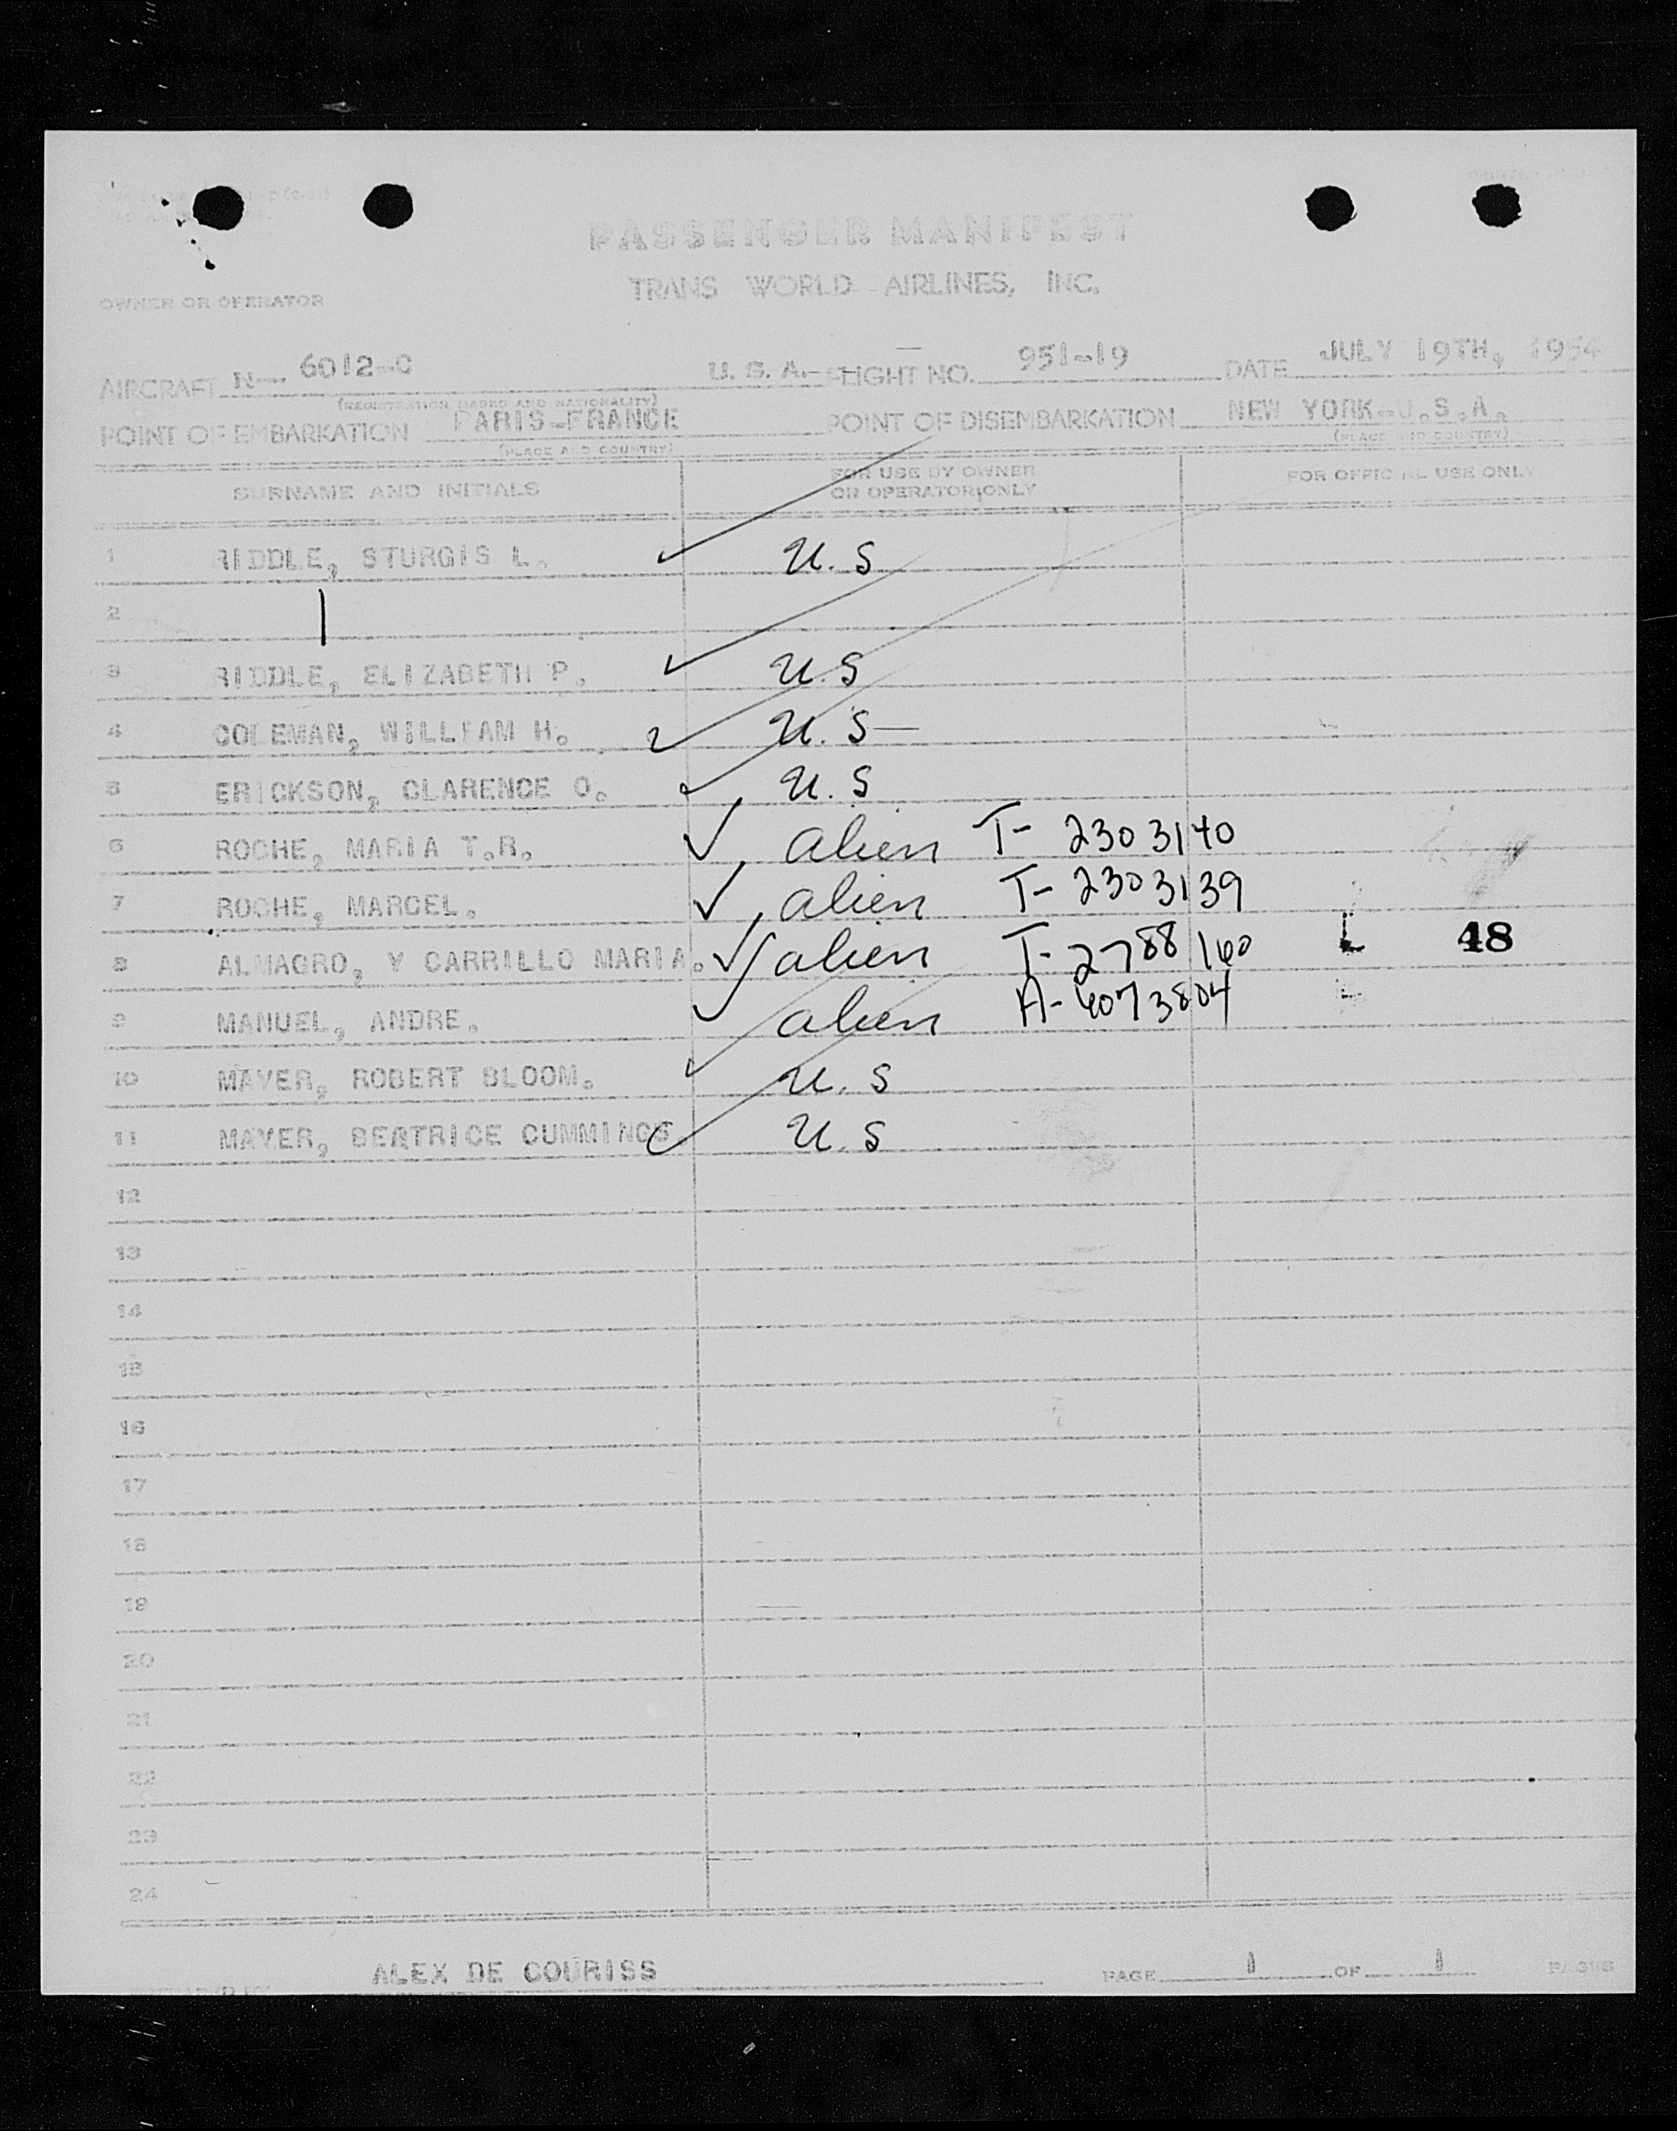 PASSENGER MANIFEST
TRANS WORLD AIRLINES, INC.
OWNER OR OPERATOR
AIRCRAFT N- 6012-C U. S. A. FLIGHT NO. 951-19 DATE JULY 19TH, 1954
(REGISTRATION MARKS AND NATIONALITY)
POINT OF EMBARKATION PARIS-FRANCE POINT OF DISEMBARKATION NEW YORK-U.S.A.
(PLACE AND COUNTRY) (PLACE AND COUNTRY)
SURNAME AND INITIALS FOR USE BY OWNER OR OPERATOR ONLY FOR OFFICIAL USE ONLY
1 RIDDLE, STURGIS L. U.S
2
3 RIDDLE, ELIZABETH P. U.S
4 COLEMAN, WILLIAM H. U.S
5 ERICKSON, CLARENCE O. U.S
6 ROCHE, MARIA T.R. alien T- 2303140
7 ROCHE, MARCEL. alien T- 2303139
8 ALMAGRO, Y CARRILLO MARIA. alien T- 2788160 L 48
9 MANUEL, ANDRE. alien A- 6073804
10 MAYER, ROBERT BLOOM. U.S
11 MAYER, BEATRICE CUMMINGS U.S
12
13
14
15
16
17
18
19
20
21
22
23
24
ALEX DE COURISS PAGE 1 OF 1